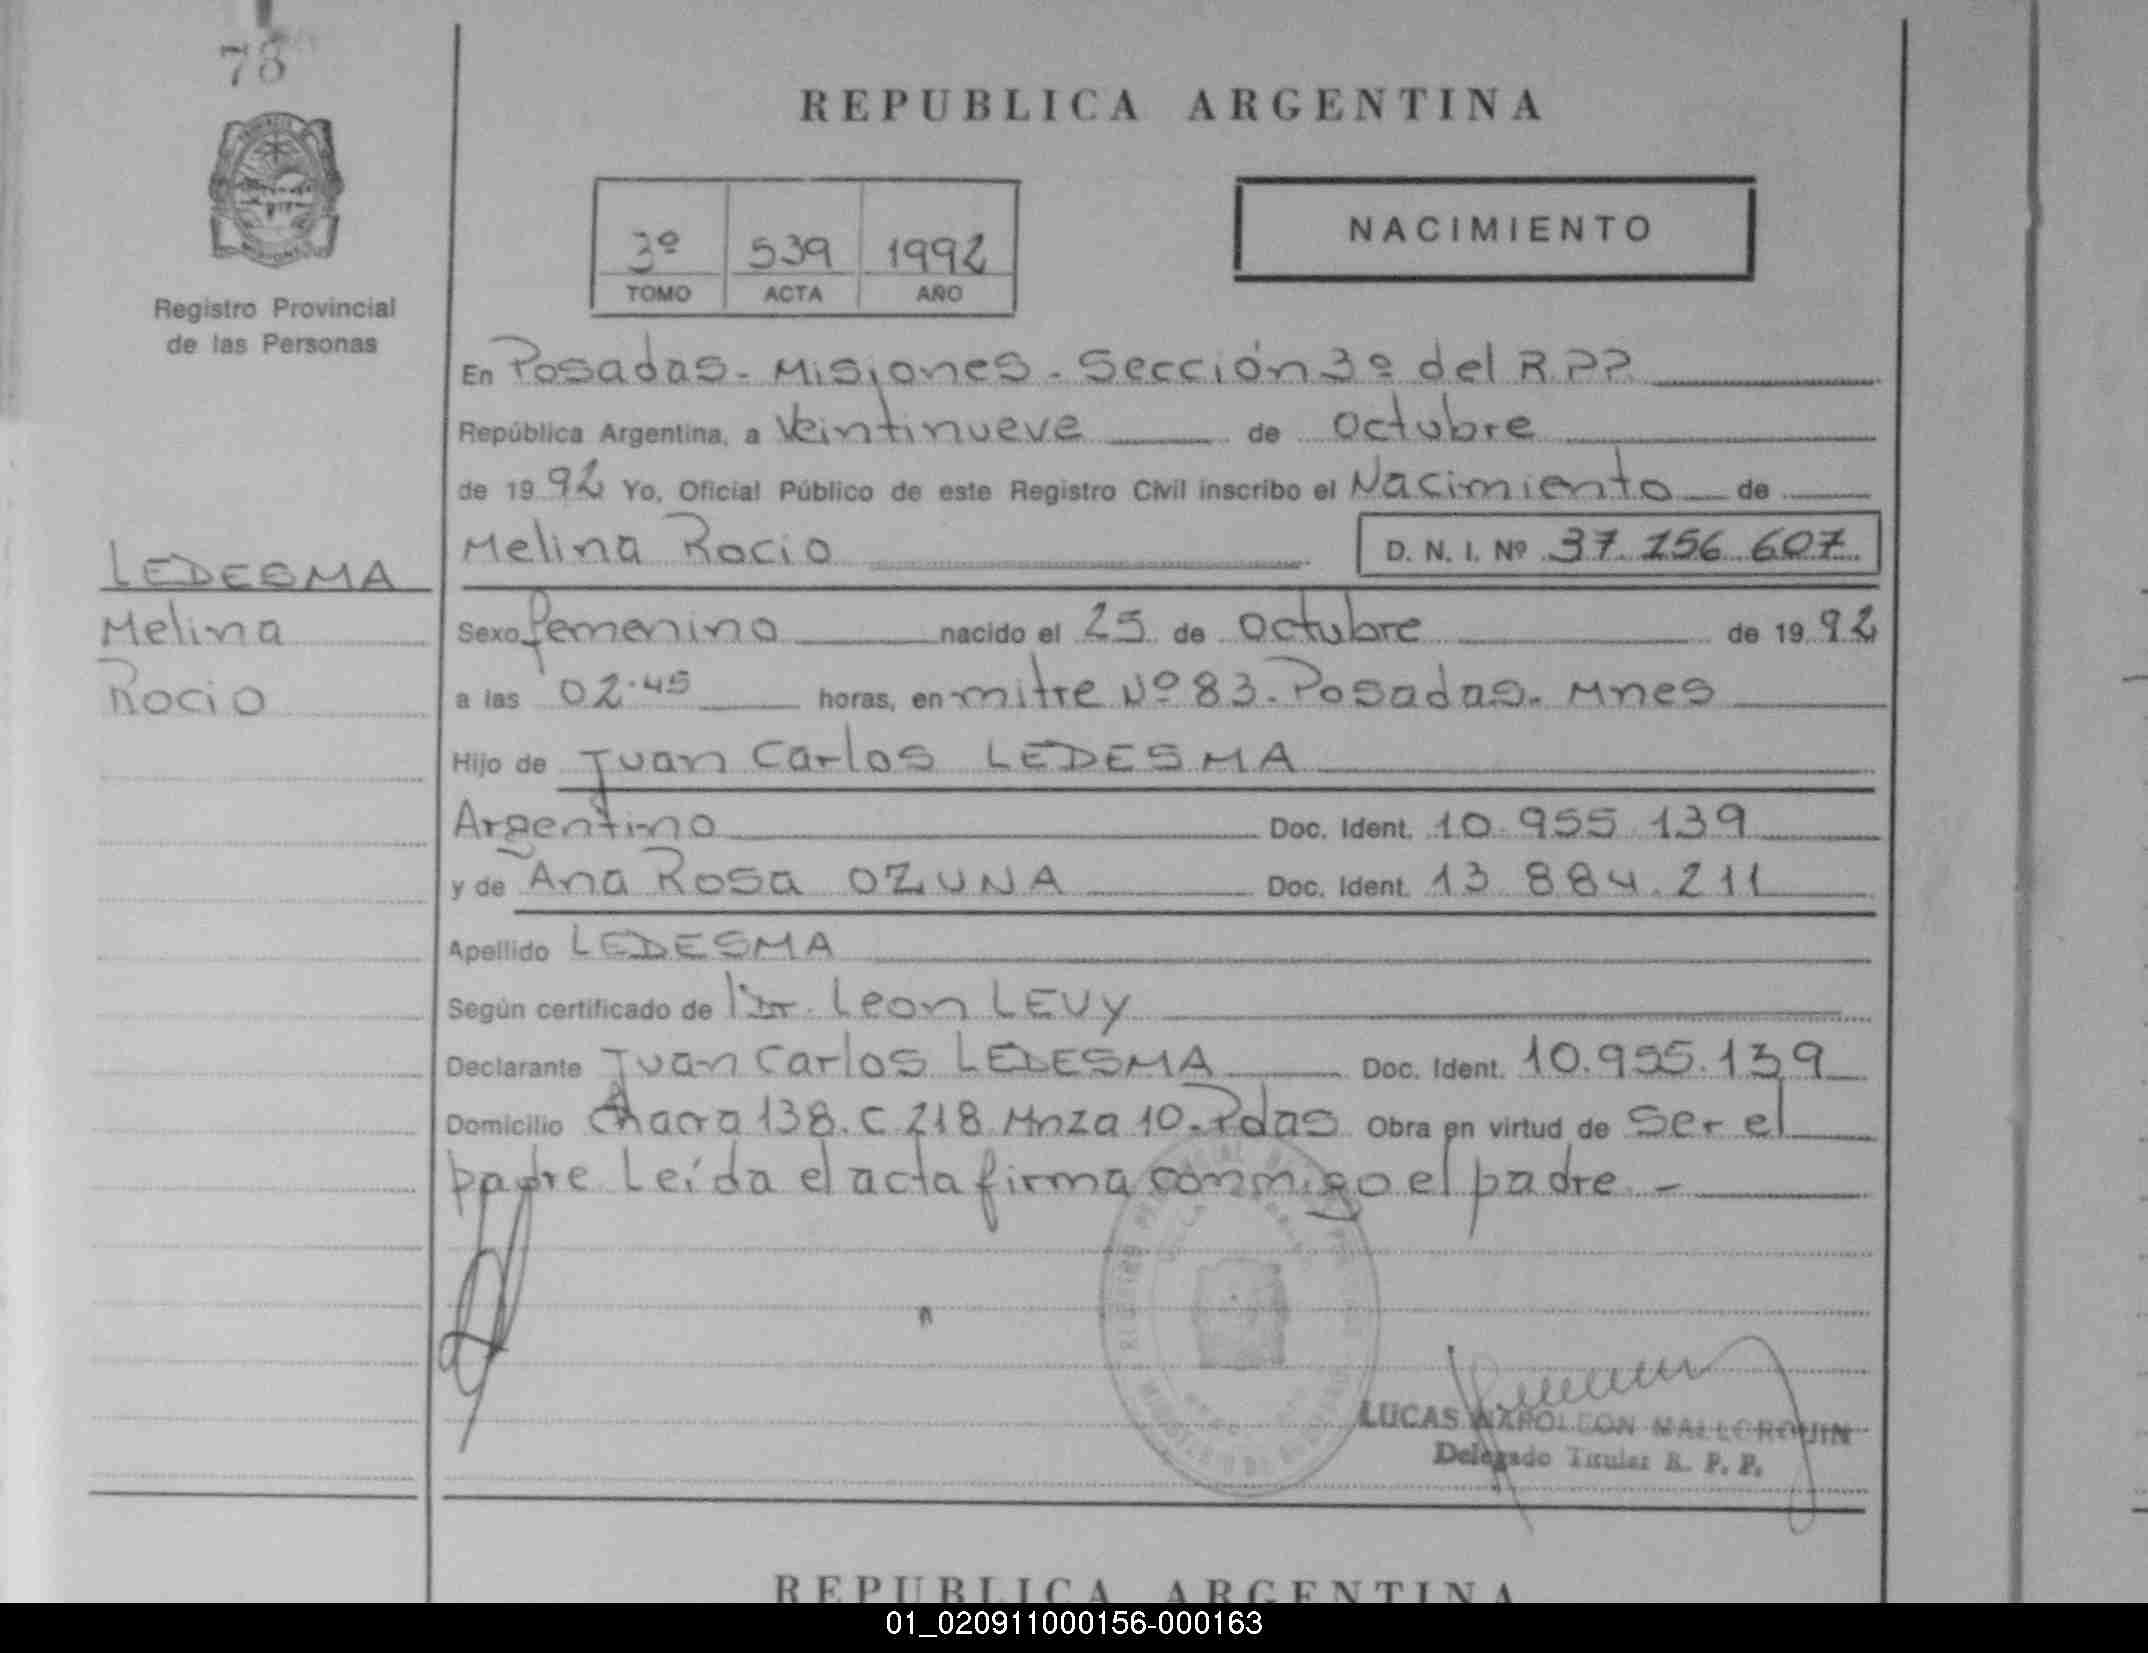 78
REPUBLICA ARGENTINA
NACIMIENTO
3º 539 1992
TOMO ACTA AÑO
Registro Provincial
de las Personas
En Posadas - Misiones - Sección 3º del R.P.P.
República Argentina, a Veintinueve de Octubre
de 1992 Yo, Oficial Público de este Registro Civil inscribo el Nacimiento de
Melina Rocio D. N. I. Nº 37.156.607
LEDESMA
Melina
Rocio
Sexo femenino nacido el 25 de Octubre de 1992
a las 02.45 horas, en mitre Nº 83. Posadas. Mnes
Hijo de Juan Carlos LEDESMA
Argentino Doc. Ident. 10.955.139
y de Ana Rosa OZUNA Doc. Ident. 13.884.211
Apellido LEDESMA
Según certificado de Dr. Leon LEVY
Declarante Juan Carlos LEDESMA Doc. Ident. 10.955.139
Domicilio Chacra 138. C 218 Mnza 10. Pdas Obra en virtud de Ser el
padre Leída el acta firma conmigo el padre -
LUCAS NAPOLEON MALLORQUIN
Delegado Titular R. P. P.
REPUBLICA ARGENTINA
01_020911000156-000163